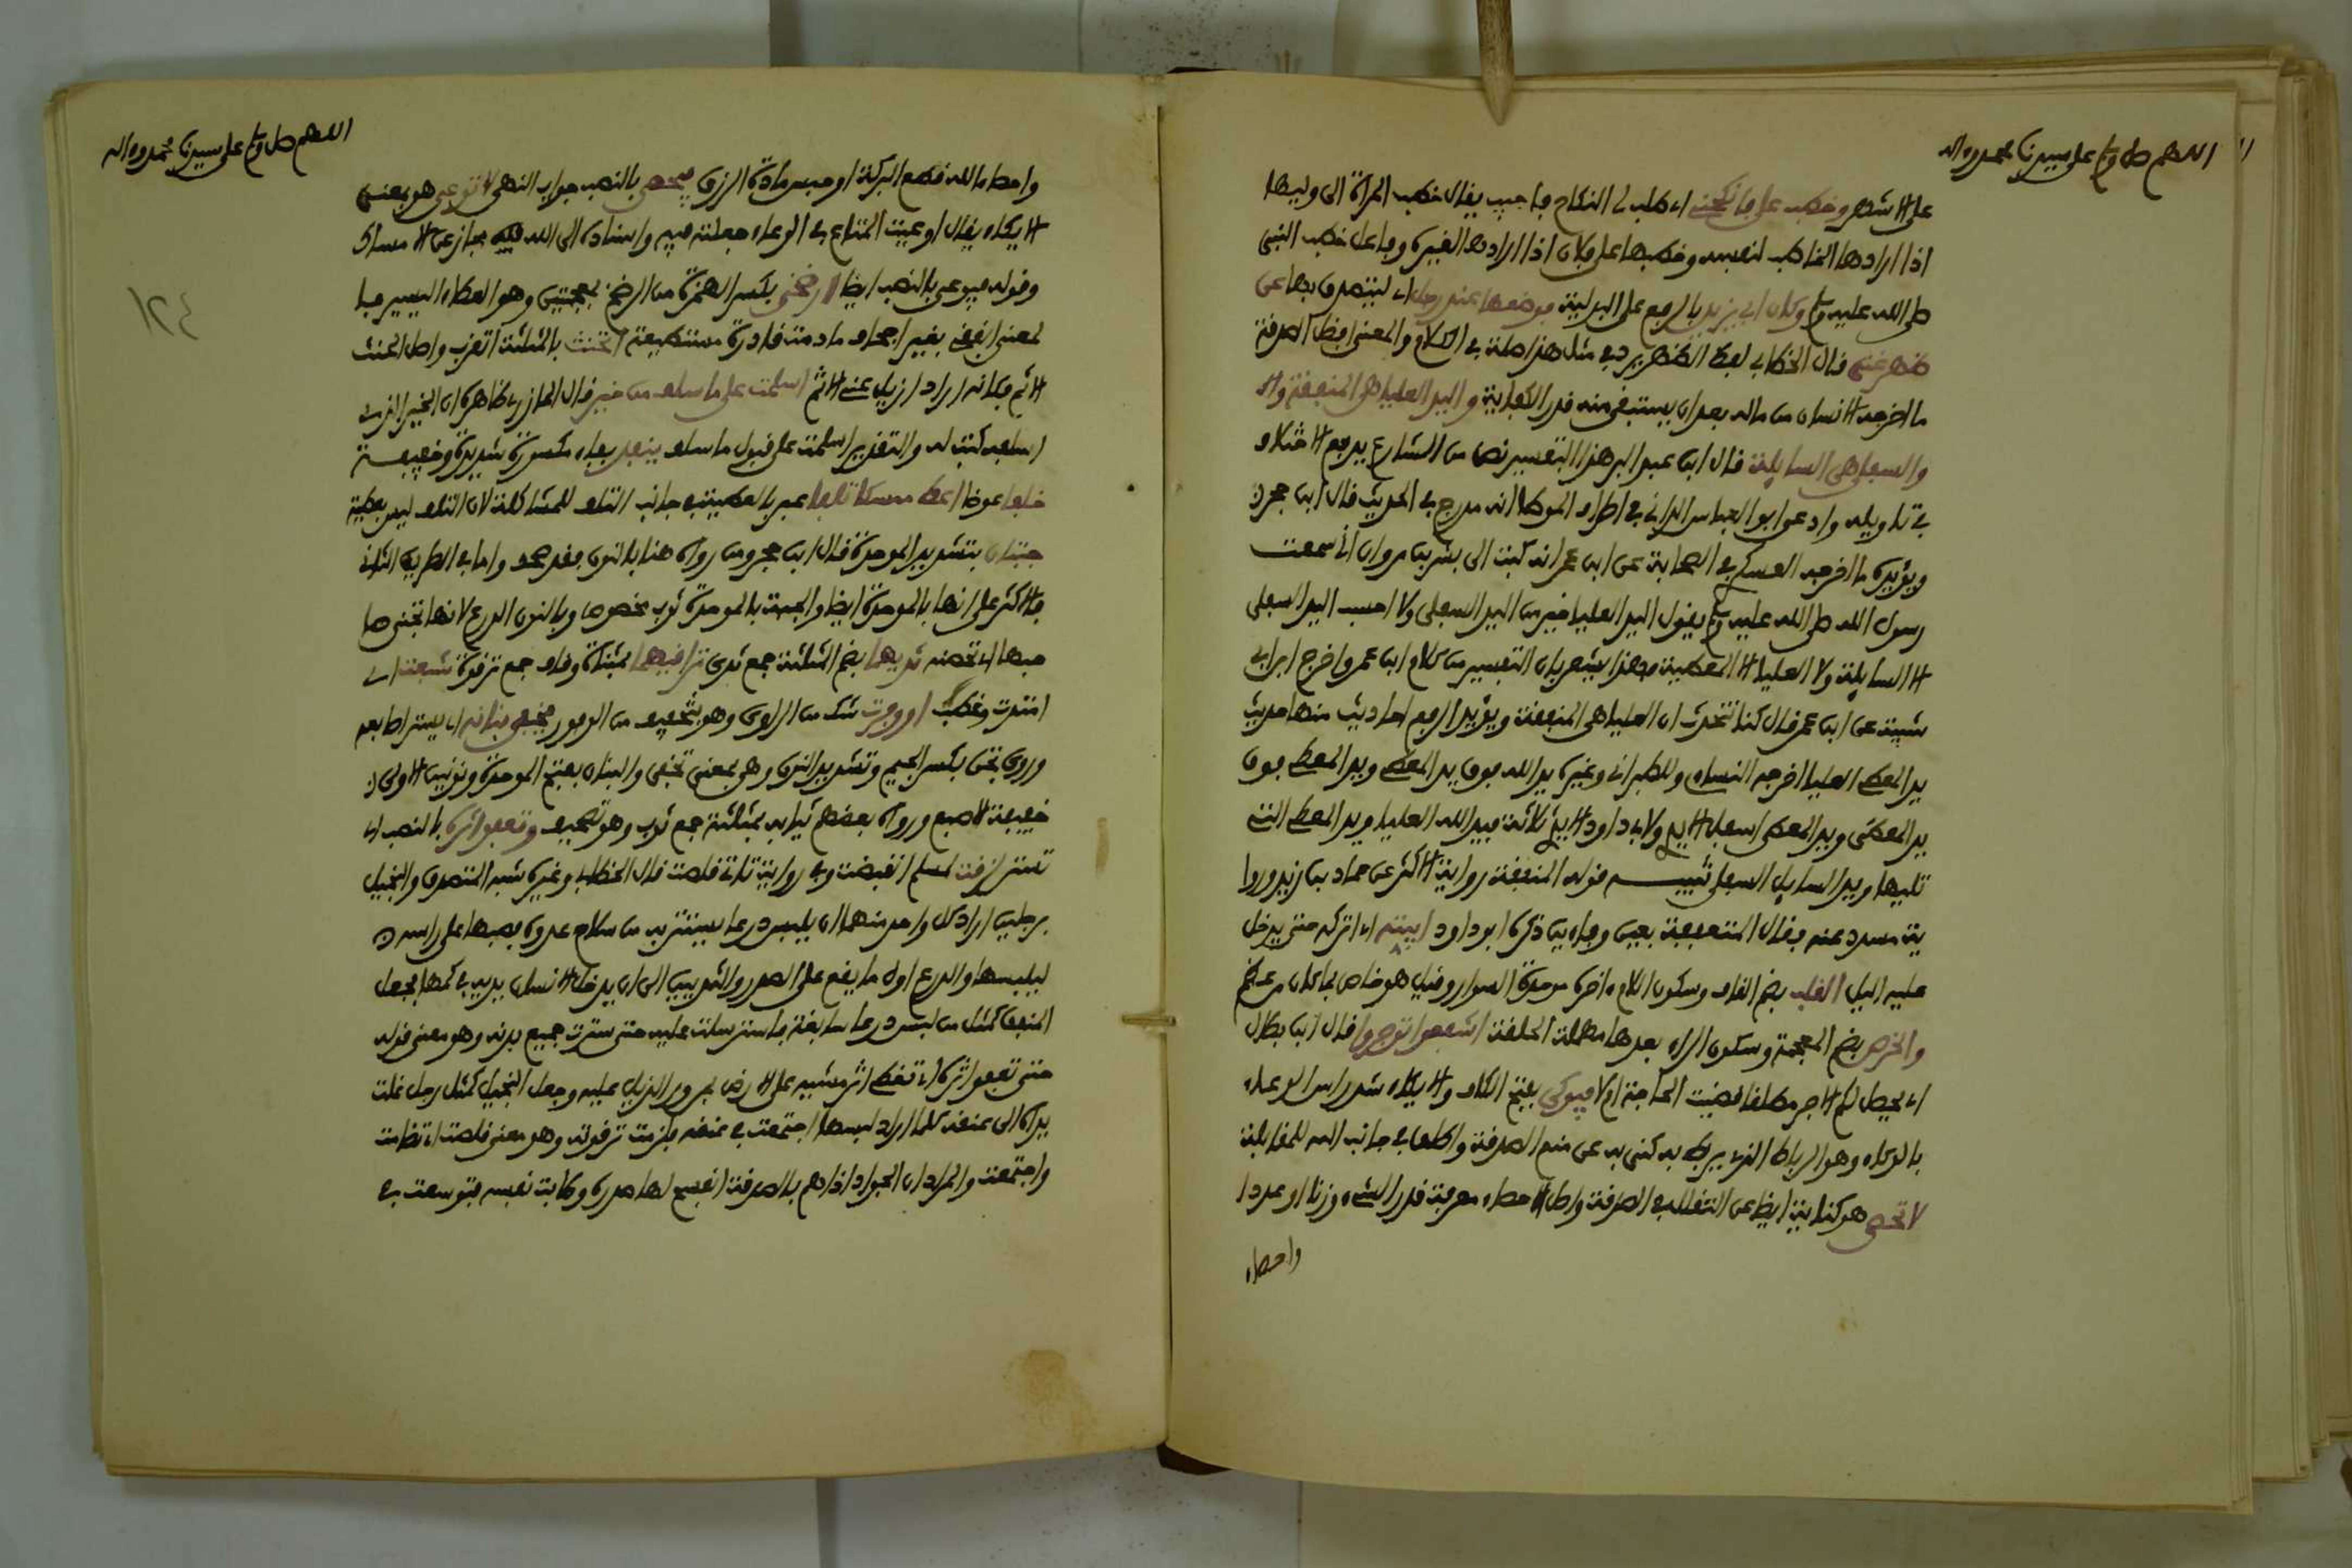 اللهم صل وسلم على سيدنا محمد وءاله
على الاشهر وخطب على فانكحني اي طلب لي النكاح فاجيب يقال خطب المراة الى وليها
اذا ارادها الخاطب لنفسه وخطبها على فلان اذا ارادها لغيره وفاعل خطب النبي
صلى الله عليه وسلم وكان ابي يزيد بالرفع على البدلية فوضعها عند رجل اي ليتصدق بها عن
ظهر غنى قال الخطابي لفظ الظهر يرد في مثل هذا صلة في الكلام والمعنى افضل الصدقة
ما اخرجه الانسان من ماله بعد ان يستبقي منه قدر الكفاية واليد العليا هي المنفقة وال
والسفلى هي السايلة قال ابن عبد البر هذا التفسير نص من الشارع يدفع الاختلاف
في تاويله وادعى ابو العباس الداني في اطراف الموطا انه مدرج في الحديث قال ابن حجر
ويؤيده ما اخرجه العسكري في الصحابة عن ابن عمر انه كتب الى بشر بن مروان اني سمعت
رسول الله صلى الله عليه وسلم يقول اليد العليا خير من اليد السفلى ولا احسب اليد السفلى
الا السايلة ولا العليا الا المعطية فهذا يشعر بان التفسير من كلام ابن عمر واخرج ابن ابي
شيبة عن ابن عمر قال كنا نتحدث ان العليا هي المنفقة ويؤيد الرفع احاديث منها حديث
يد المعطي العليا اخرجه النساءي وللطبراني وغيره يد الله فوق يد المعطي ويد المعطي فوق
يد المعطى ويد المعطى اسفل الايدي ولابي داود الايدي ثلاثة فيد الله العليا ويد المعطي التي
تليها ويد السايل السفلى تنبيه قوله المنفقة رواية الاكثر عن حماد بن زيد وروا
ية مسدد عنه فقال المتعففة بعين وفاءين ذكره ابو داود ابيته اي اتركه حتى يدخل
عليه الليل القلب بضم القاف وسكون اللام ءاخره موحدة السوار وقيل هو خاص بما كان من عظم
والخرص بضم المعجمة وسكون الراء بعدها مهملة الحلقة اشفعوا توجروا قال ابن بطال
اي يحصل لكم الاجر مطلقا قضيت الحاجة اولا فيوكى بفتح الكاف والايكاء شد راس الوعاء
بالوكاء وهو الرباط الذي يربط به كنى به عن منع الصدقة واطلق في جانب الله للمقابلة
لا تحصي هو كناية ايضا عن التقلل في الصدقة واصل الاحصاء معرفة قدر الشيء وزنا او عددا
واحصاء
اللهم صل وسلم على سيدنا محمد وءاله
واحصاء الله قطع البركة او حبس مادة الرزق فيحصي بالنصب جواب النهي لا توعي هو بمعنى
الايكاء يقال اوعيت المتاع في الوعاء جعلته فيه واسناده الى الله فيه مجاز عن الامساك
وقوله فيوعي بالنصب ايضا ارضخي بكسر الهمزة من الرضخ بمعجمتين وهو العطاء اليسير فيا
لمعنى انفقي بغير اجحاف ما دمت قادرة مستطيعة اتحنث بالمثلثة اتقرب واصل الحنث
الاثم فكانه اراد ازيل عني الاثم اسلمت على ما سلف من خير قال المازري ظاهره ان الخير الذي
اسلفه كتب له والتقدير اسلمت على قبول ما سلف ينفذ بفاء مكسورة شديدة وخفيفة
خلفا عوضا اعط ممسكا تلفا عبر بالعطية في جانب التلف للمشاكلة لان التلف ليس بعطية
جبتان بتشديد الموحدة قال ابن حجر ومن رواه هنا بالنون فقد صحف واما في الطريق الثاني
فالاكثر على انها بالموحدة ايضا والجبة بالموحدة ثوب مخصوص وبالنون الدرع لانها تجني صا
حبها اي تحصنه ثديهما بضم المثلثة جمع ثدي تراقيهما بمثناة وقاف جمع ترقوة سبغت اي
امتدت وغطت او وفرت شك من الراوي وهو بتخفيف من الوفور تخفي بنانه اي يستر اصابعه
وروي تجن بكسر الجيم وتشديد النون وهو بمعنى تخفي والبنان بفتح الموحدة ونونين الاولى
خفيفة الاصبع ورواه بعضهم ثيابه بمثلثة جمع ثوب وهو تصحيف وتعفو اثره بالنصب اي
تستر لزقت لمسلم انقبضت وفي رواية تاتي قلصت قال الخطابي وغيره شبه المتصدق والبخيل
برجلين اراد كل واحد منهما ان يلبس درعا يستتر به من سلاح عدوه فصبها على راسه
ليلبسها والدرع اول ما يقع على الصدر والثديين الى ان يدخل الانسان يديه في كمها فجعل
المنفق كمثل من لبس درعا سابغة فاسترسلت عليه حتى سترت جميع بدنه وهو معنى قوله
حتى تعفو اثره اي تغطي اثر مشيه على الارض بمرور الذيل عليه وجعل البخيل كمثل رجل غلت
يداه الى عنقه كلما اراد لبسها اجتمعت في عنقه فلزمت ترقوته وهو معنى قلصت اي تضامت
واجتمعت والمراد ان الجواد اذا هم بالصدقة انفسح لها صدره وطابت نفسه فتوسعت في